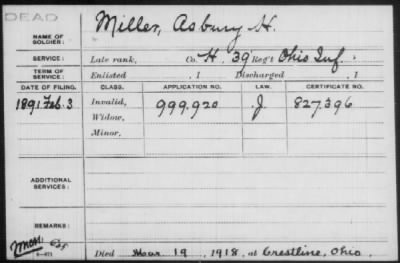 DEAD
NAME OF SOLDIER: Miller, Asbury H.
SERVICE: Late rank, Co. H, 39 Reg't Ohio Inf.
TERM OF SERVICE: Enlisted , 1 Discharged , 1
DATE OF FILING. CLASS. APPLICATION NO. LAW. CERTIFICATE NO.
1891 Feb. 3 Invalid, 999.920 J. 827.396
Widow,
Minor,
ADDITIONAL SERVICES:
REMARKS:
Died Mar 19, 1918, at Crestline, Ohio.